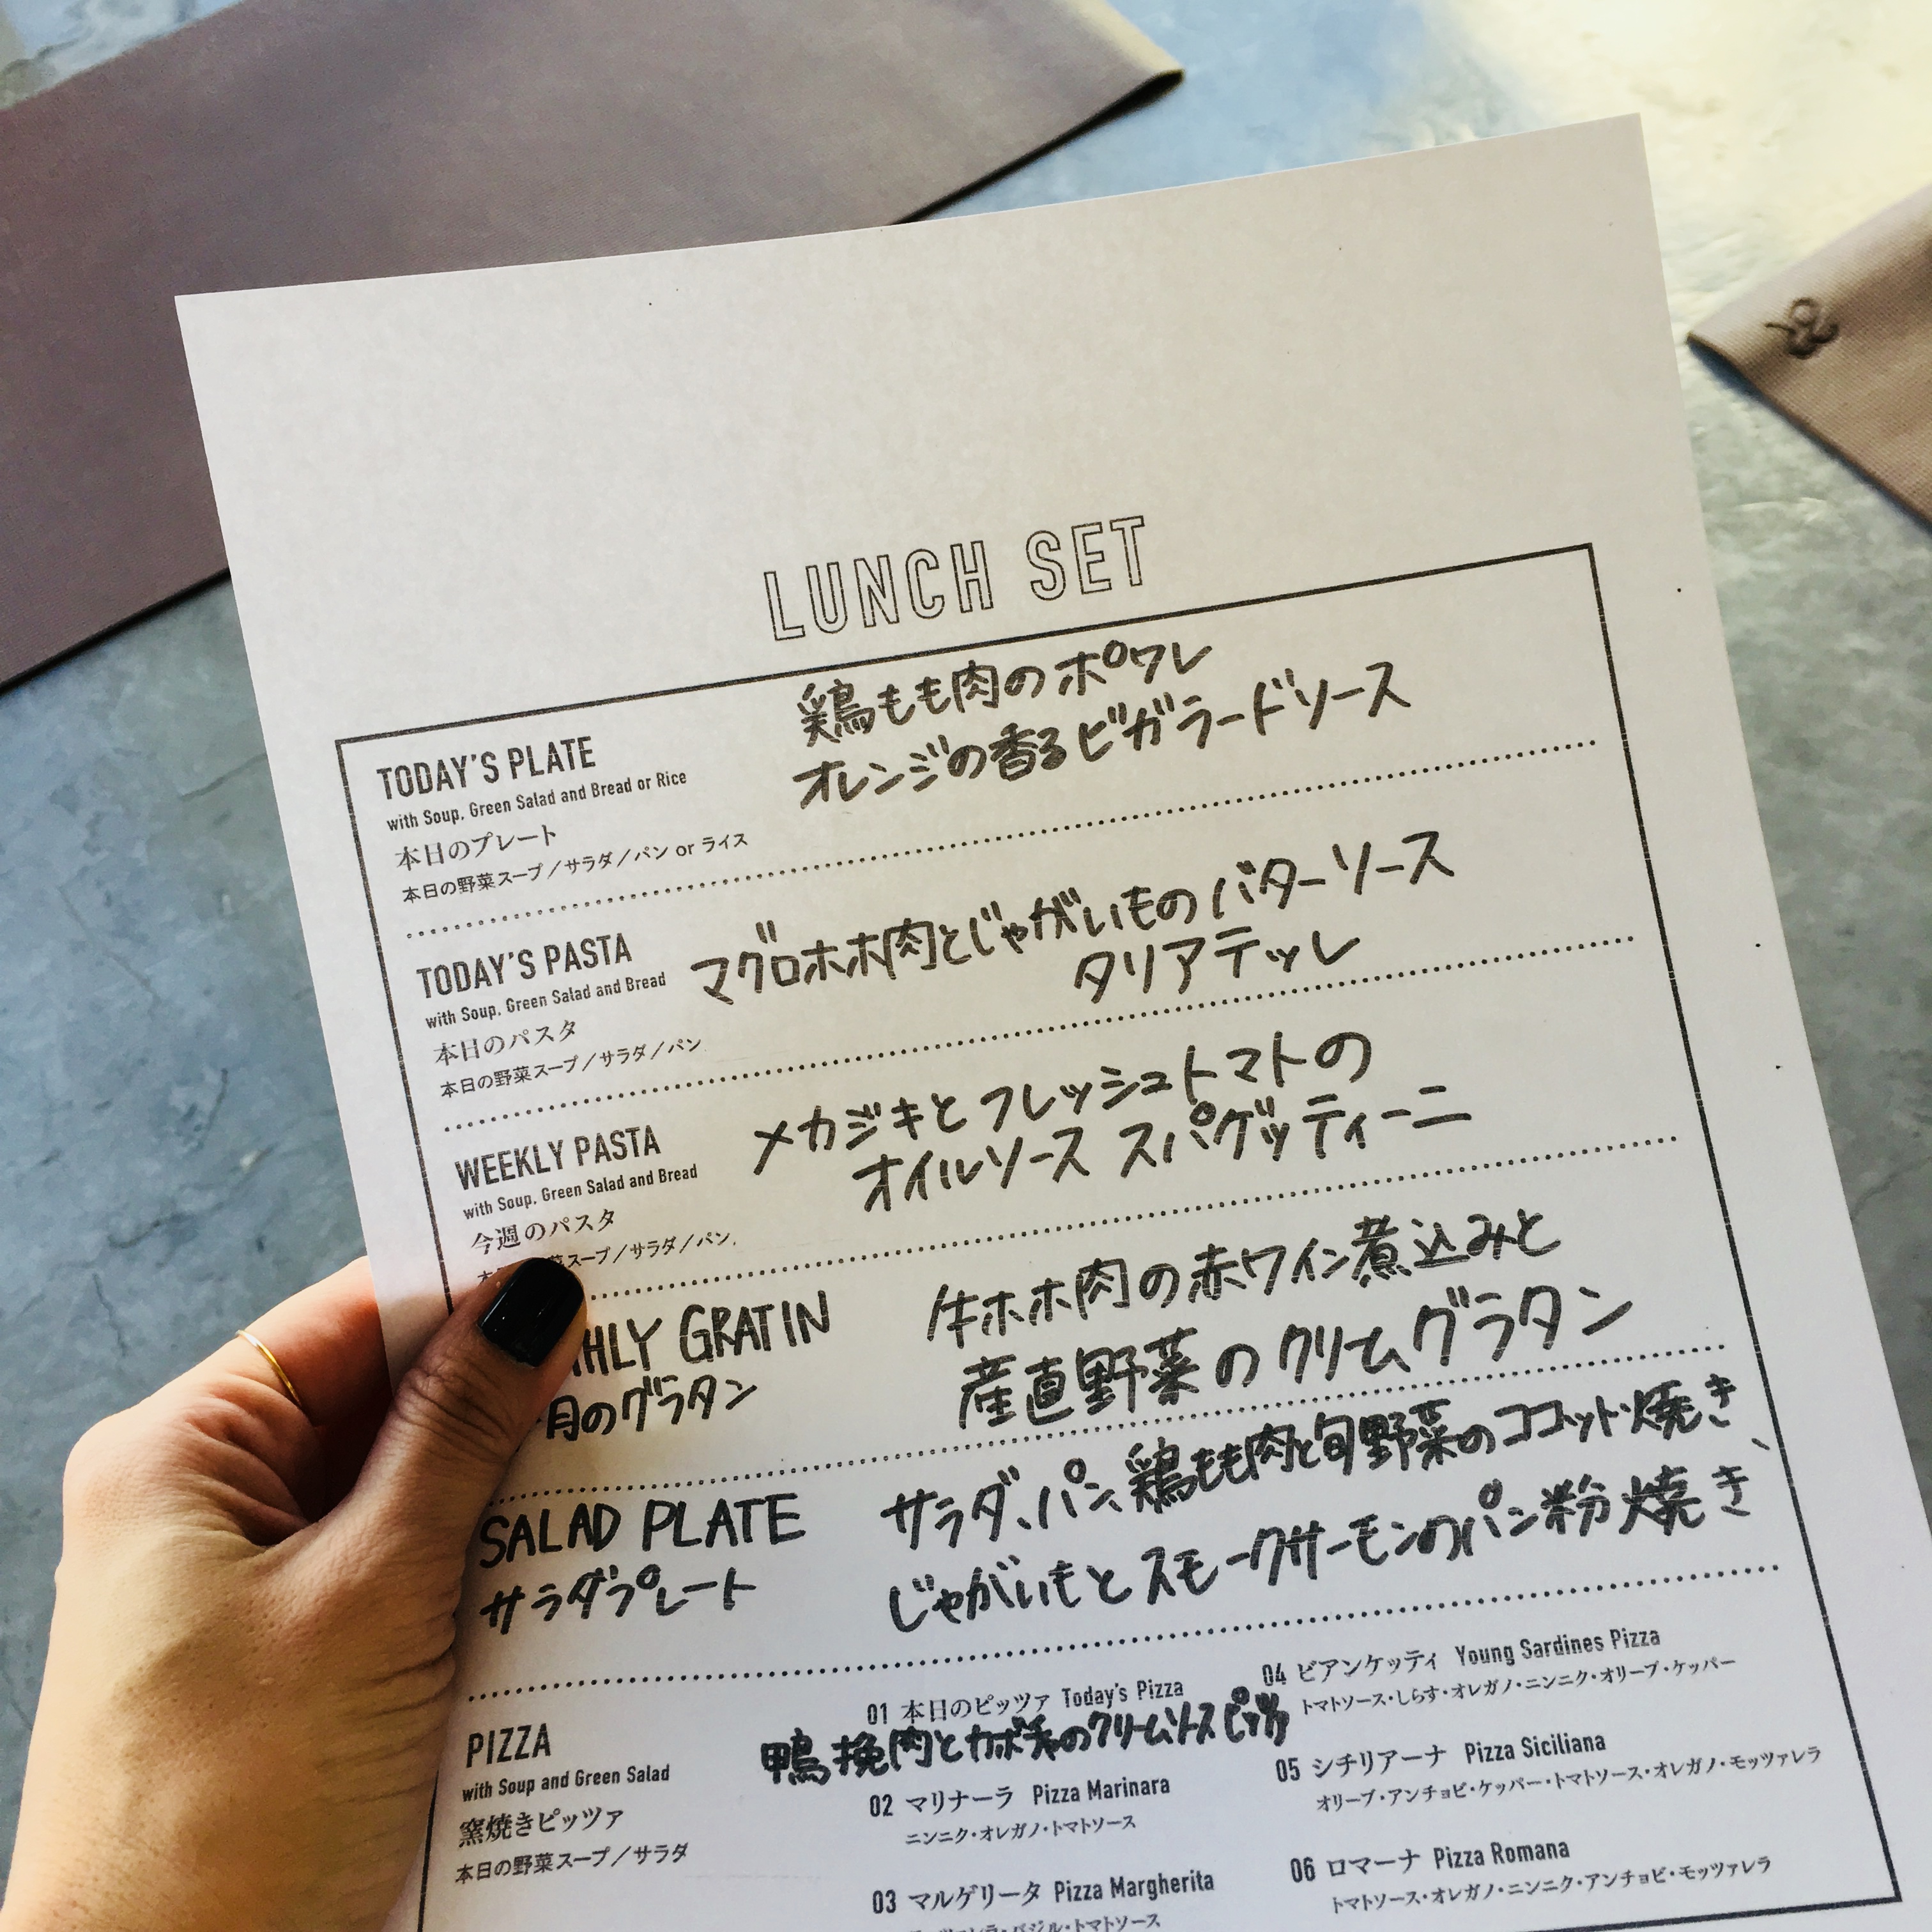 LUNCH SET
TODAY'S PLATE
with Soup, Green Salad and Bread or Rice
本日のプレート
本日の野菜スープ／サラダ／パン or ライス
鶏もも肉のポワレ
オレンジの香るビガラードソース
TODAY'S PASTA
with Soup, Green Salad and Bread
本日のパスタ
本日の野菜スープ／サラダ／パン
マグロホホ肉とじゃがいものバターソース
タリアテッレ
WEEKLY PASTA
with Soup, Green Salad and Bread
今週のパスタ
菜スープ／サラダ／パン
メカジキとフレッシュトマトの
オイルソース スパゲッティーニ
HLY GRATIN
月のグラタン
牛ホホ肉の赤ワイン煮込みと
産直野菜のクリームグラタン
SALAD PLATE
サラダプレート
サラダ、パン、鶏もも肉と旬野菜のココット焼き、
じゃがいもとスモークサーモンのパン粉焼き
PIZZA
with Soup and Green Salad
窯焼きピッツァ
本日の野菜スープ／サラダ
01 本日のピッツァ Today's Pizza
鴨挽肉とカボチャのクリームソースピッツァ
02 マリナーラ Pizza Marinara
ニンニク・オレガノ・トマトソース
03 マルゲリータ Pizza Margherita
バジル・トマトソース
04 ビアンケッティ Young Sardines Pizza
トマトソース・しらす・オレガノ・ニンニク・オリーブ・ケッパー
05 シチリアーナ Pizza Siciliana
オリーブ・アンチョビ・ケッパー・トマトソース・オレガノ・モッツァレラ
06 ロマーナ Pizza Romana
トマトソース・オレガノ・ニンニク・アンチョビ・モッツァレラ